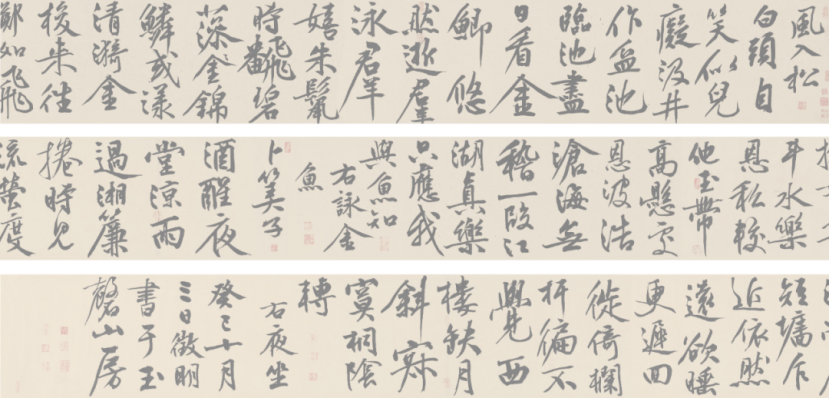 風入松
白頭自
笑似兒
癡汲井
作盆池
臨池盡
日看金
鯽悠
然逝羣
泳羣
嬉朱鬣
時飜碧
藻金錦
鱗或漾
清漪金
梭來往
如飛
斗水樂
恩私較
他玉帶
高懸處
恩波浩
滄海無
稽一段江
湖真樂
只應我
與魚知
右詠金
魚
卜筭子
酒醒夜
堂涼雨
過湘簾
捲時見
流螢度
短墻乍
近依然
遠欲睡
更遲回
徙倚欄
杆徧不
覺西
樓缺月
斜寂
寞桐陰
轉
右夜坐
癸丑十月
三日徵明
書于玉
磬山房